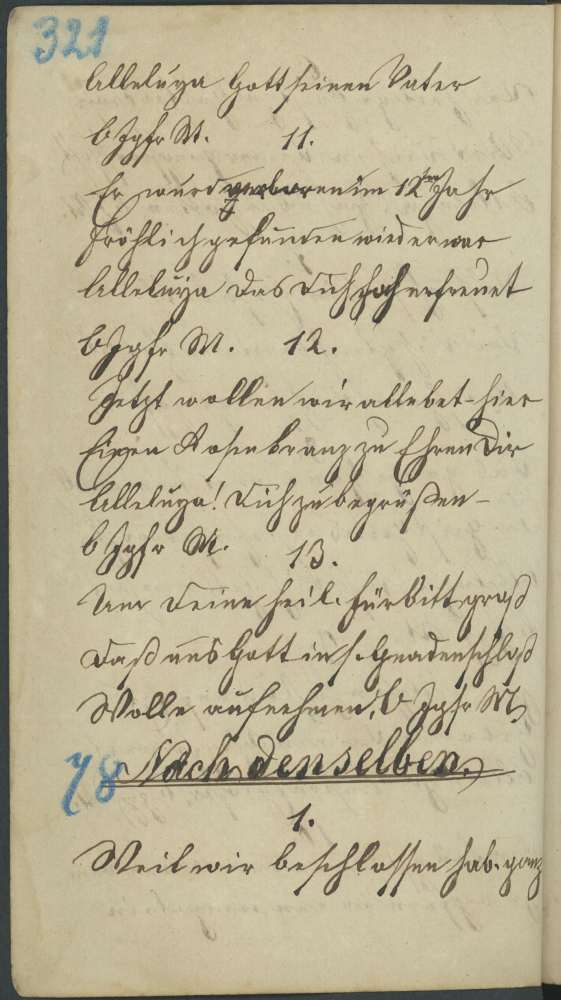 321
Alleluya Gott seinen Vater
O Jgfr M.    11.
Er wurd verloren im 12ten Jahr
Fröhlich gefunden wieder war
Alleluya Das Dich hoch erfreuet
O Jgfr M.    12.
Jetzt wollen wir alle bet- hier
Einen Rosenkranz zu Ehren Dir
Alleluya! Dich zu begrüßen-
O Jgfr M.    13.
Um Deine heil. Fürbitt groß
Daß uns Gott in s. Gnadenschloß
Wolle aufnehmen, O Jgfr M,
78 Nach denselben.
1.
Weil wir beschlossen hab. ganz